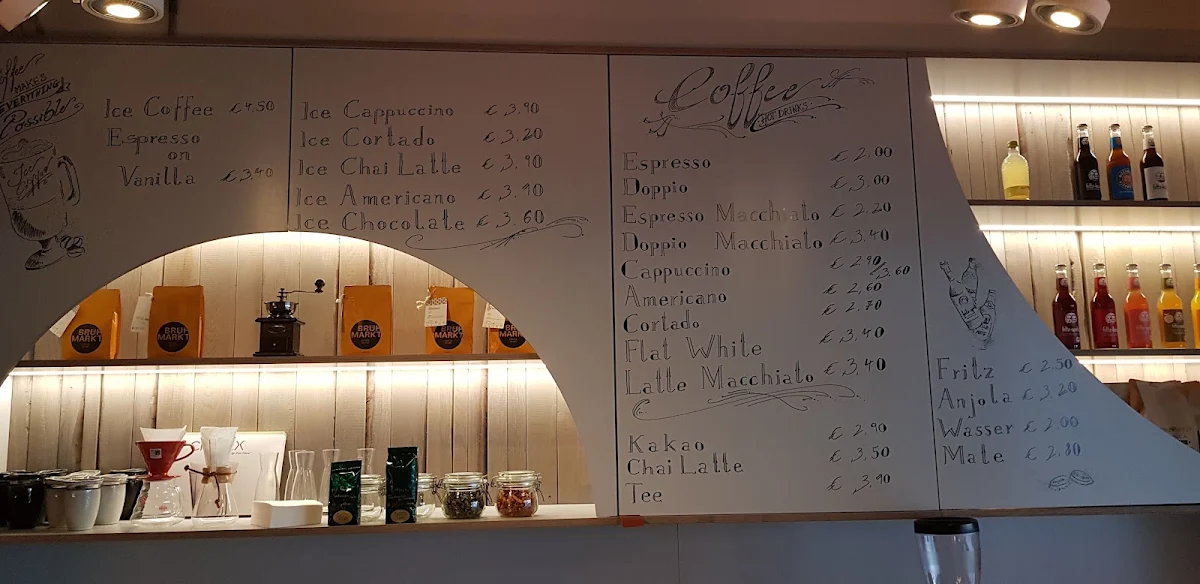 Coffee
MAKES
EVERYTHING
Possible
Ice
Coffee
Ice Coffee € 4.50
Espresso
on
Vanilla € 3,40
Ice Cappuccino € 3,90
Ice Cortado € 3,20
Ice Chai Latte € 3,90
Ice Americano € 3,90
Ice Chocolate € 3,60
Coffee
HOT DRINKS
Espresso € 2.00
Doppio € 3,00
Espresso Macchiato € 2.20
Doppio Macchiato € 3,40
Cappuccino € 2.90/3.60
Americano € 2,60
Cortado € 2.70
Flat White € 3,40
Latte Macchiato € 3,40
Kakao € 2.90
Chai Latte € 3,50
Tee € 3,90
Fritz € 2.50
Anjola € 3,20
Wasser € 2.00
Mate € 2.80
BRÜH
MARKT
BRÜH
MARKT
BRÜH
MARKT
BRÜH
MARKT
BRÜH
MARKT